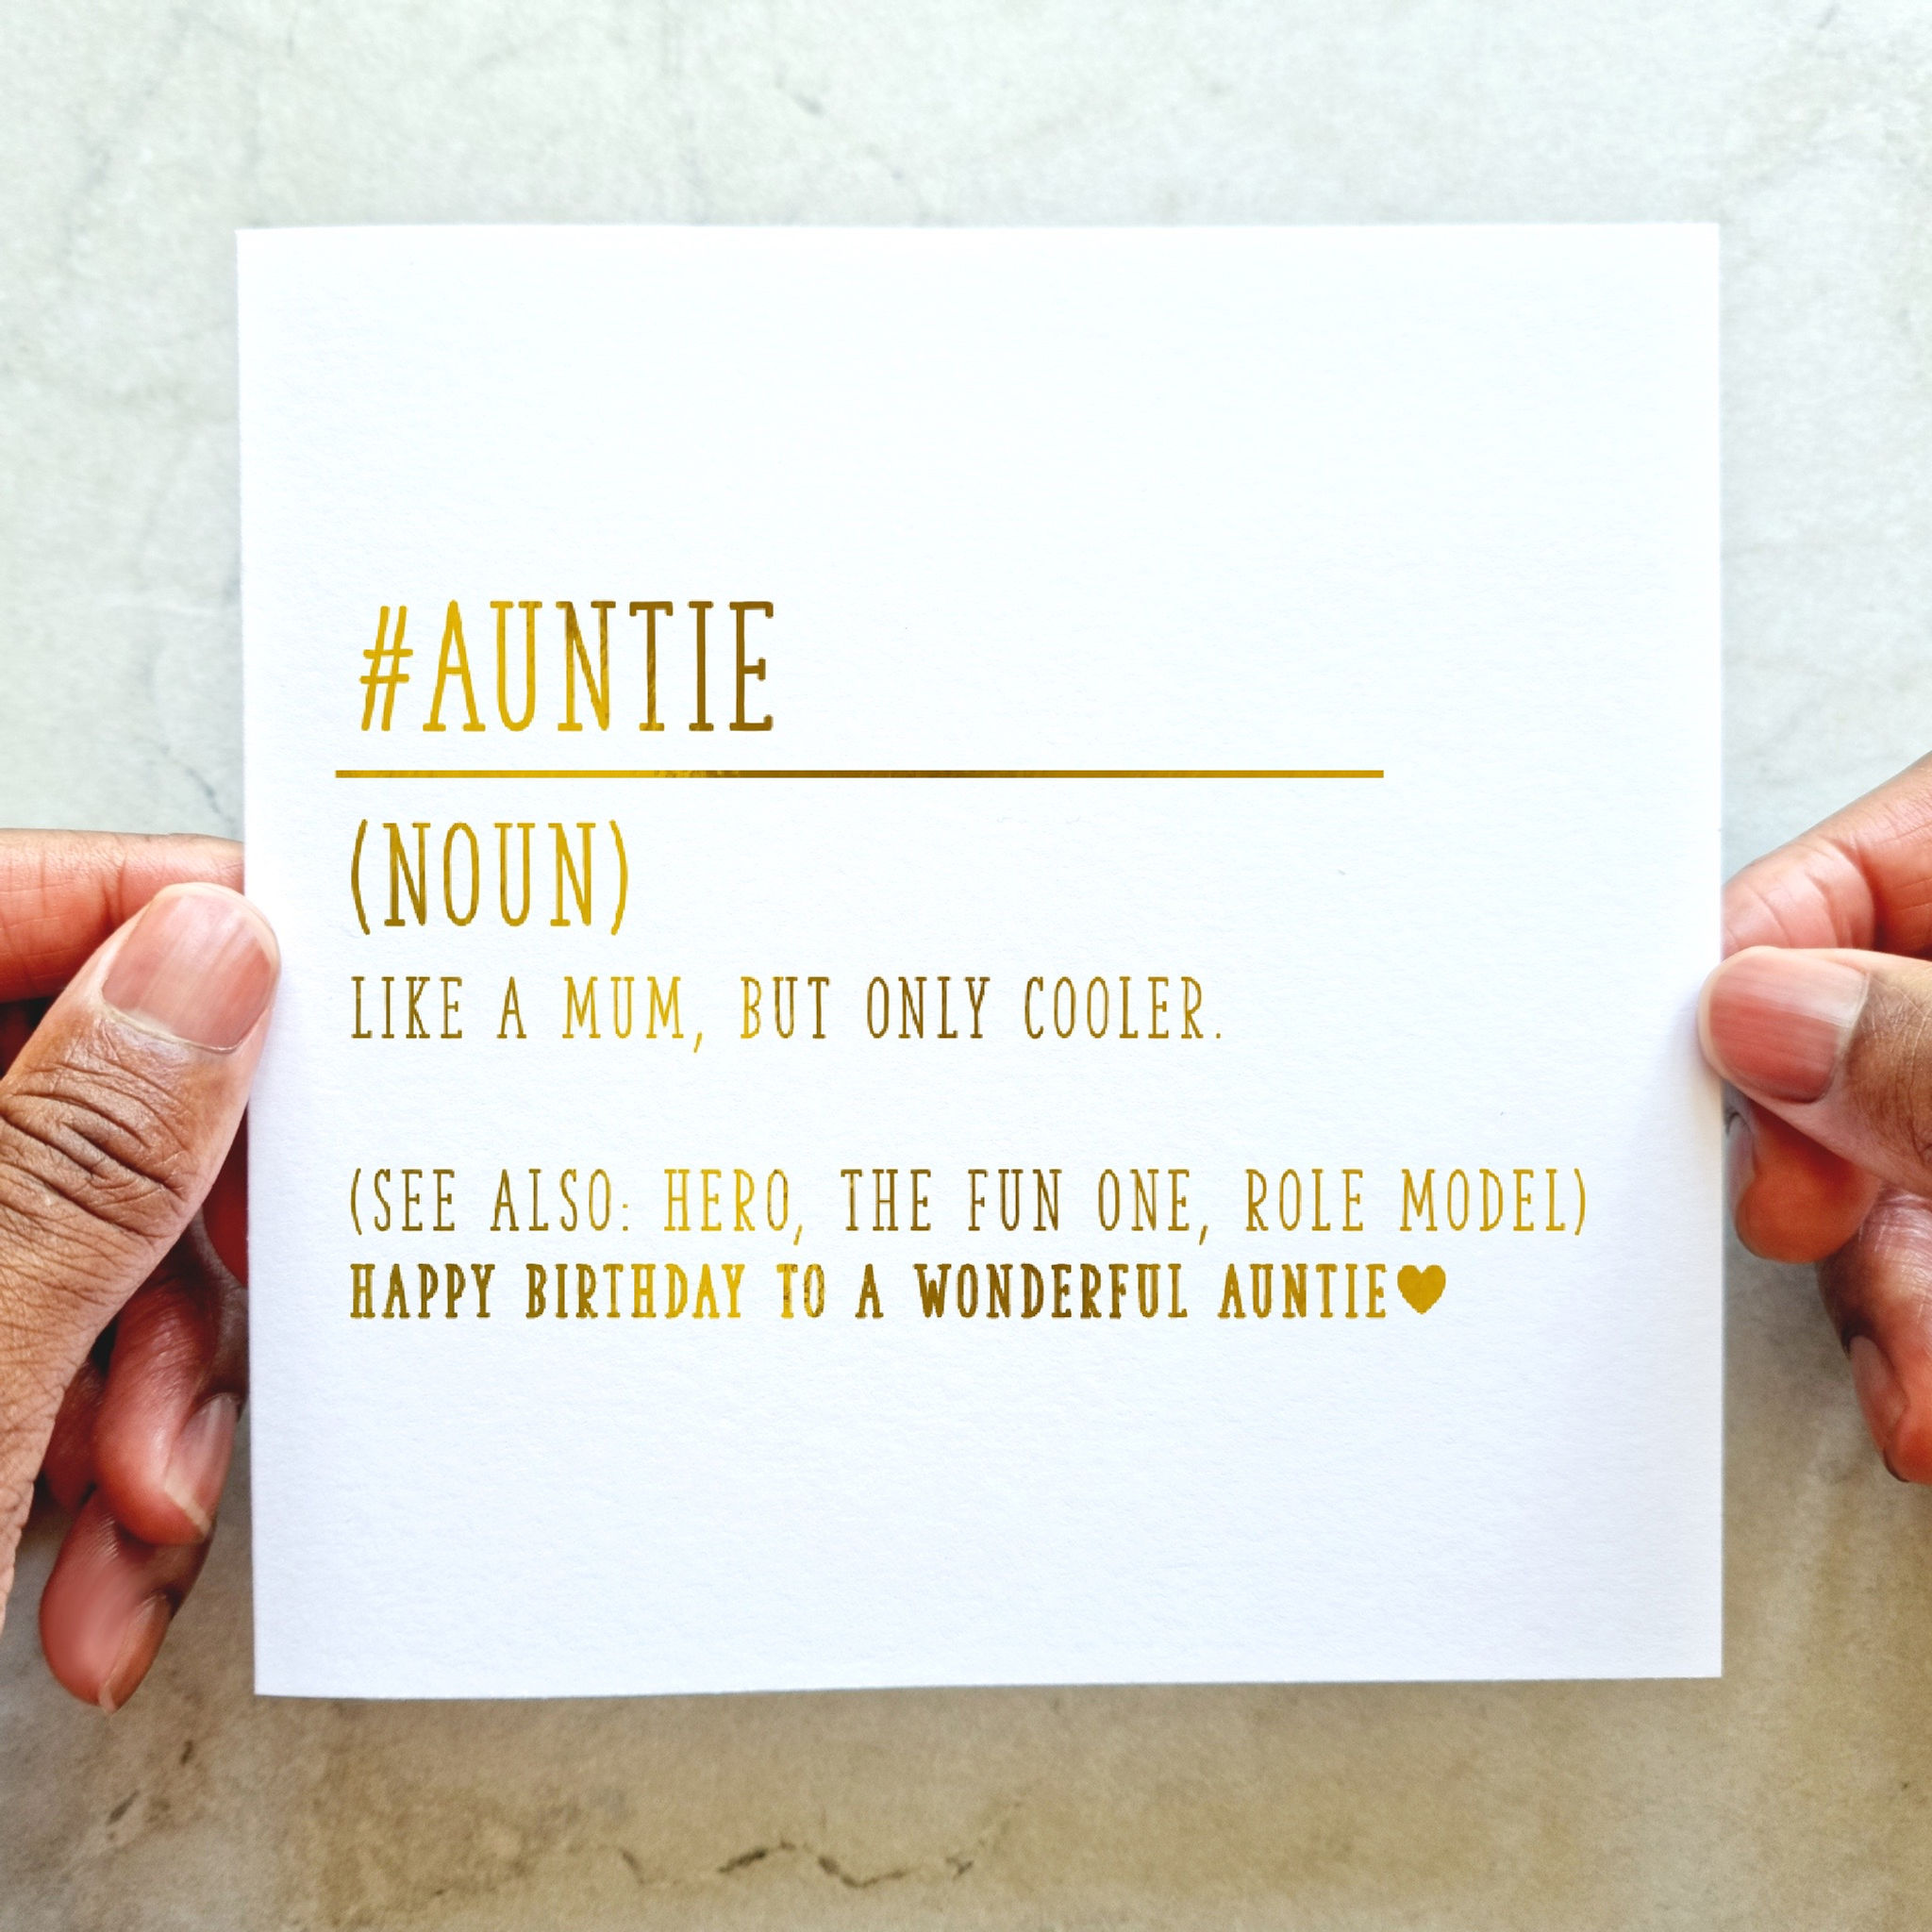 #AUNTIE
(NOUN)
LIKE A MUM, BUT ONLY COOLER.
(SEE ALSO: HERO, THE FUN ONE, ROLE MODEL)
HAPPY BIRTHDAY TO A WONDERFUL AUNTIE♥